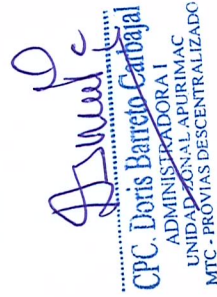 CPC. Doris Barreto Carbajal
ADMINISTRADORA I
UNIDAD ZONAL APURIMAC
MTC - PROVIAS DESCENTRALIZADO